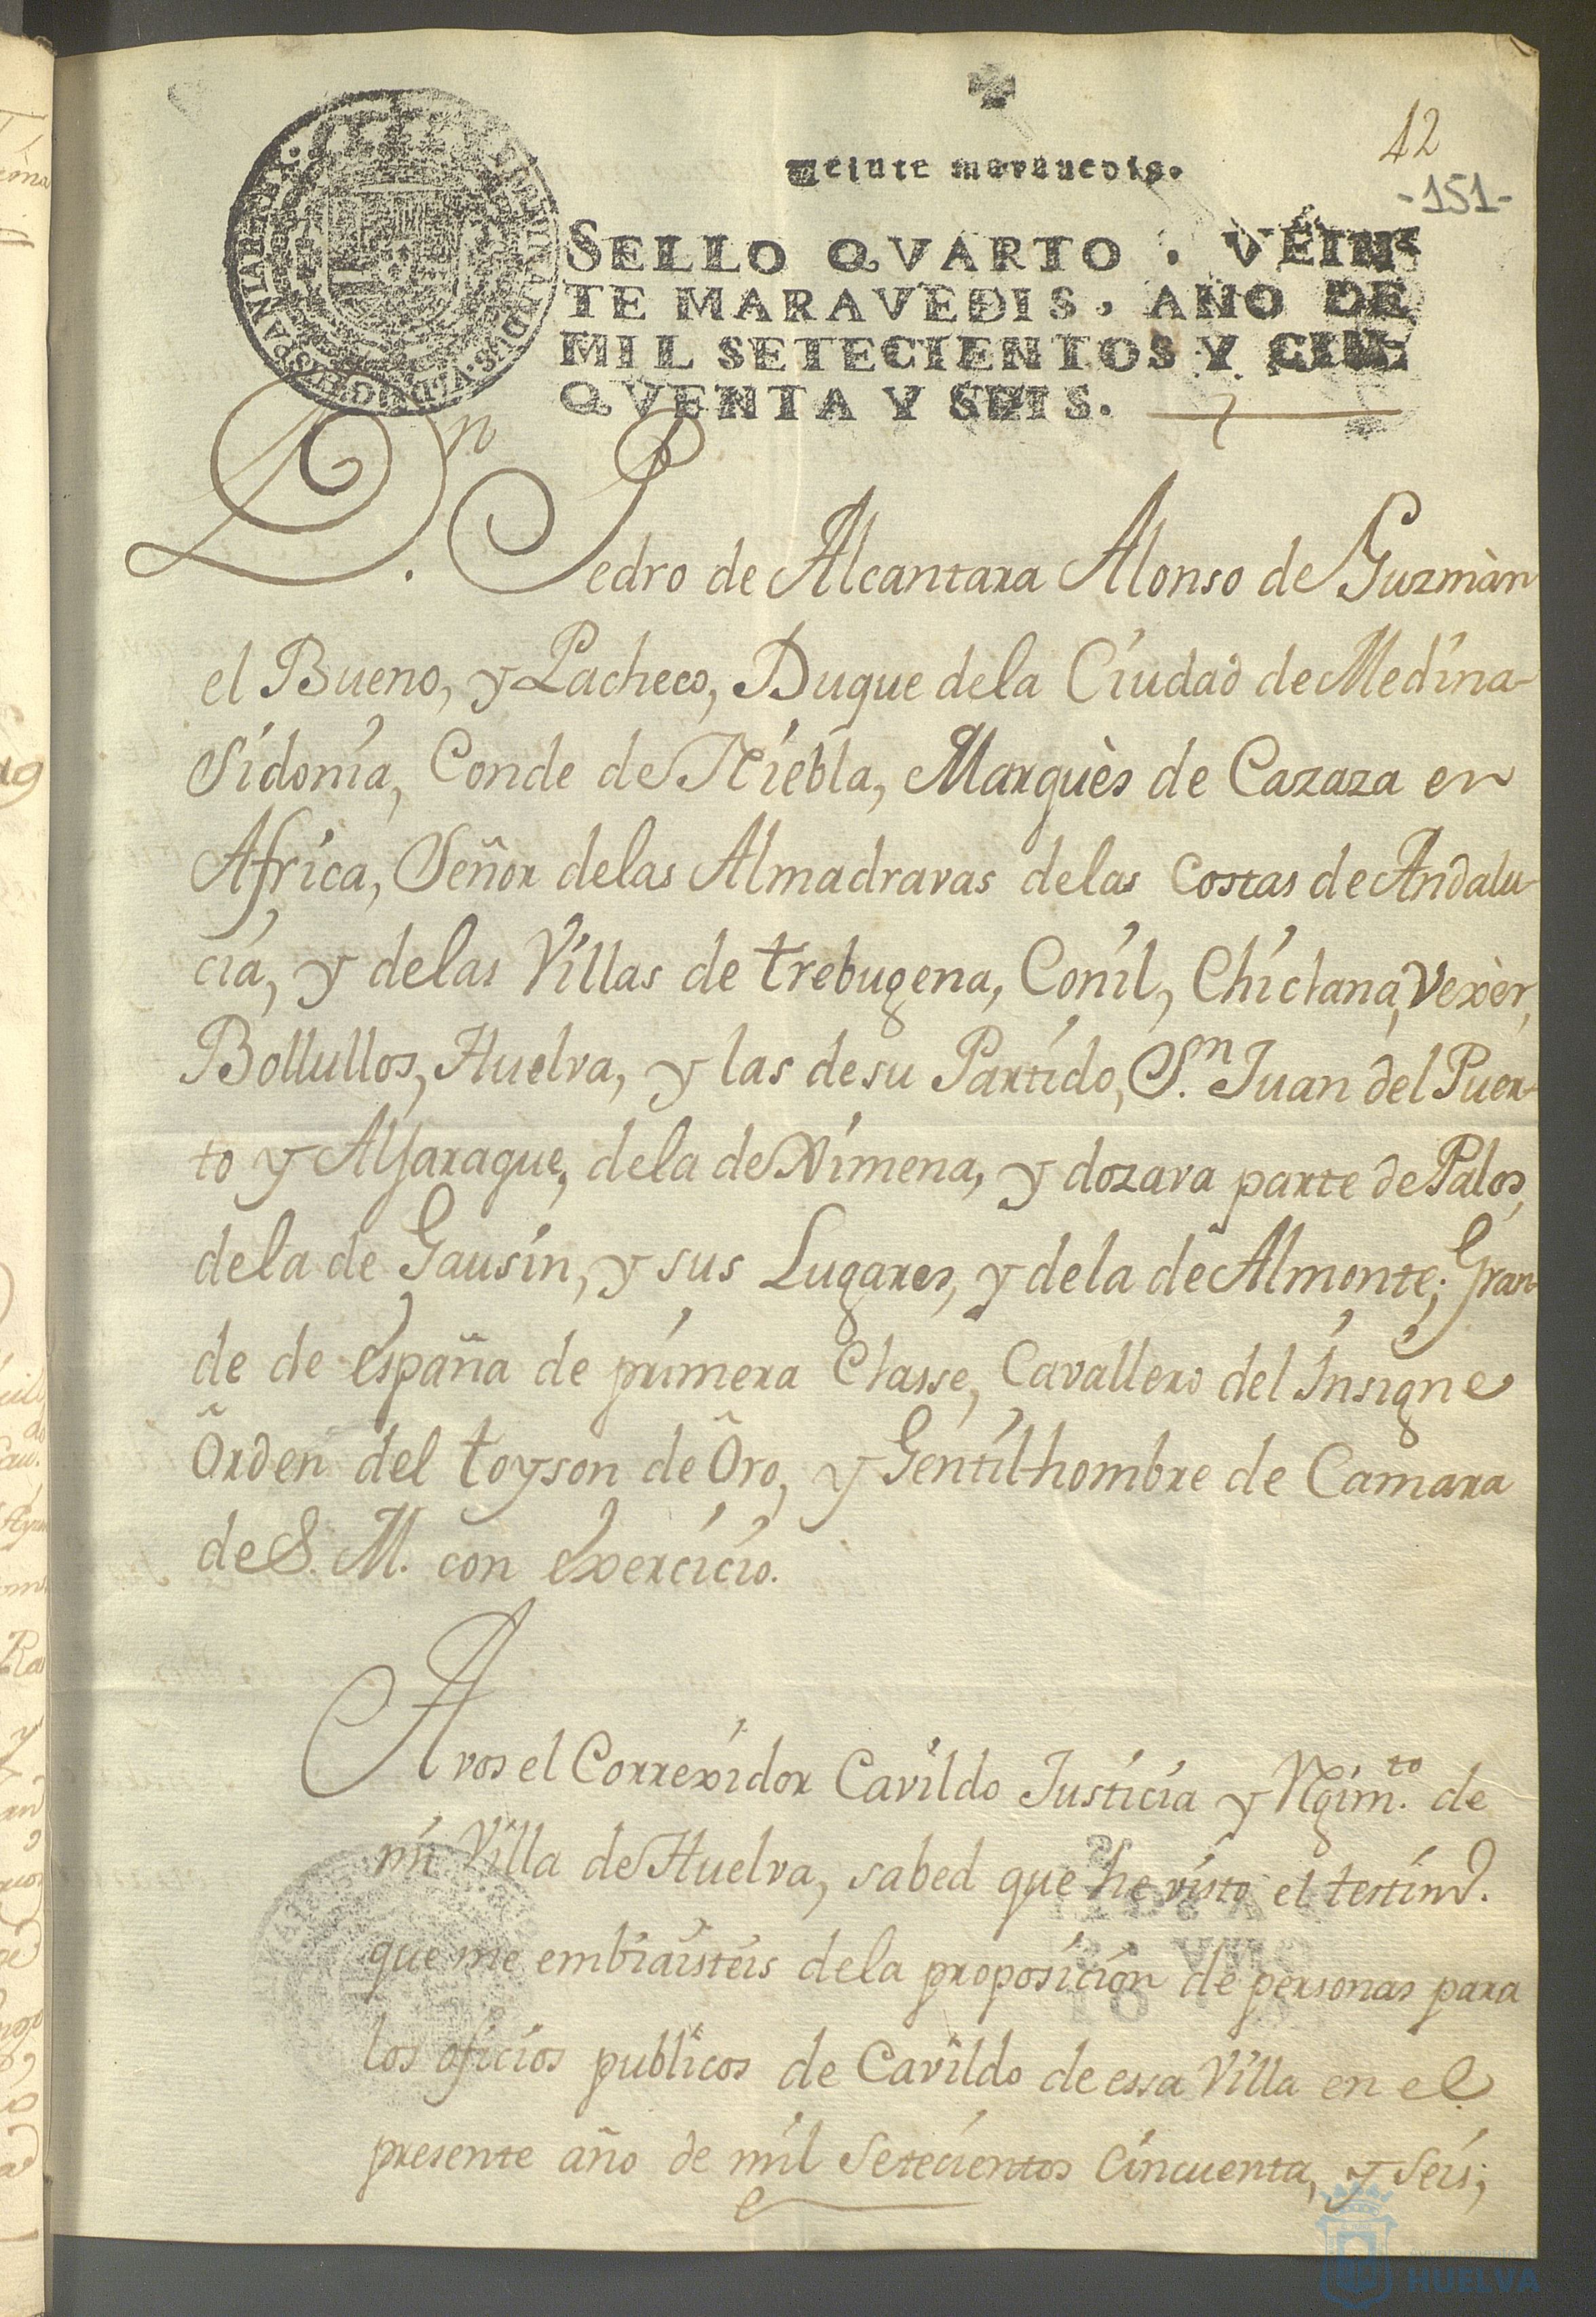 42
-151-
Veinte maravedis.
SELLO QVARTO . VEIN-
TE MARAVEDIS, AÑO DE
MIL SETECIENTOS Y CIN-
QVENTA Y SEIS.
Dn. Pedro de Alcantara Alonso de Guzmàn
el Bueno, y Pacheco, Duque dela Ciudad de Medina-
Sidonia, Conde de Niebla, Marquès de Cazaza en
Africa, Señor delas Almadravas delas Costas de Andalu-
cia, y delas Villas de trebugena, Conil, Chiclana, Vexèr,
Bollullos, Huelva, y las de su Partido, Sn. Juan del Puer-
to y Aljaraque, dela de Ximena, y dozava parte de Palos,
dela de Gausin, y sus Lugares, y dela de Almonte; Gran-
de de españa de primera Classe, Cavallero del Insigne
Orden del toyson de Oro, y Gentilhombre de Camara
de S. M. con exercicio.
A vos el Correxidor Cavildo Justicia y Rgim.to de
mi Villa de Huelva, sabed que he visto el testimo.
que me embiaisteis dela proposicion de personas para
los oficios publicos de Cavildo de essa Villa en el
presente año de mil Setecientos Cincuenta, y Seis;
HUELVA